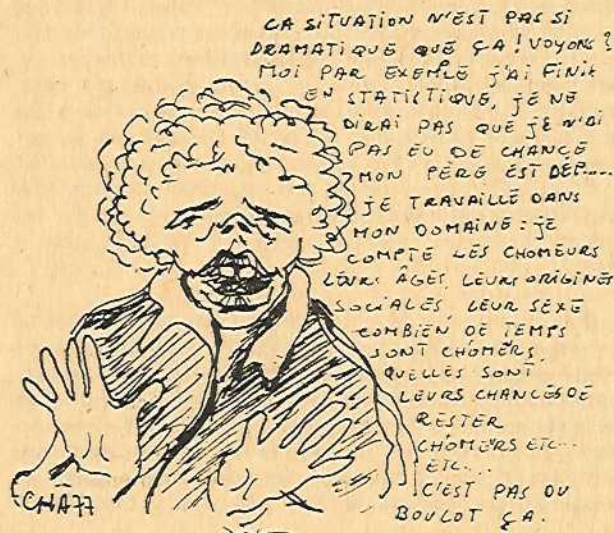 CA SITUATION N'EST PAS SI
DRAMATIQUE QUE ÇA ! VOYONS ?
MOI PAR EXEMPLE J'AI FINIT
EN STATISTIQUE, JE NE
DIRAI PAS QUE JE N'AI
PAS EU DE CHANCE
MON PÈRE EST DÉP.....
JE TRAVAILLE DANS
MON DOMAINE : JE
COMPTE LES CHOMEURS
LEURS ÂGES, LEURS ORIGINES
SOCIALES, LEUR SEXE
COMBIEN DE TEMPS
SONT CHOMERS,
QUELLES SONT
LEURS CHANCES DE
RESTER
CHOMERS ETC...
ETC....
C'EST PAS DU
BOULOT ÇA.
CHA77